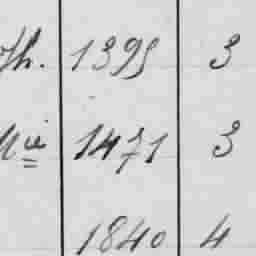 Th. 1395 3
Mie 1471 3
1840 4